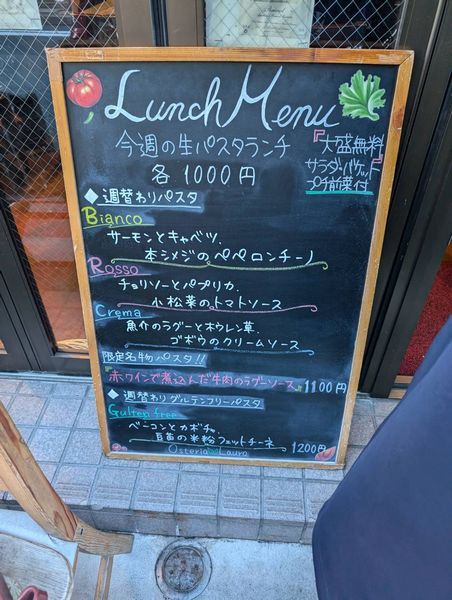 Lunch Menu
今週の生パスタランチ
各1000円
『大盛無料』
サラダ・バケット
プチ前菜付
◆週替わりパスタ
Bianco
サーモンとキャベツ、
本シメジのペペロンチーノ
Rosso
チョリソーとパプリカ、
小松菜のトマトソース
Crema
魚介のラグーとホウレン草、
ゴボウのクリームソース
限定名物パスタ!!
『赤ワインで煮込んだ牛肉のラグーソース』1100円
◆週替わりグルテンフリーパスタ
Gulten free
ベーコンとカボチャ、
豆苗の米粉フェットチーネ 1200円
Osteria Lauro